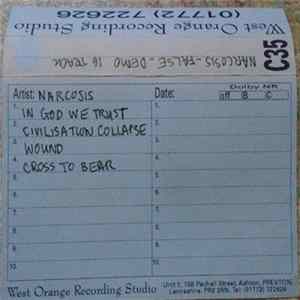 West Orange Recording Studio
(01772) 722626
NARCOSIS - FALSE - DEMO 16 TRACK
C35
Artist: NARCOSIS
Date:
Dolby NR
off B C
1. IN GOD WE TRUST
2. CIVILISATION COLLAPSE
3. WOUND
4. CROSS TO BEAR
5.
6.
7.
8.
9.
10.
1.
2.
3.
4.
5.
6.
7.
8.
9.
10.
West Orange Recording Studio
Street, Ashton, PRESTON,
Lancashire, PR2 Tel: (01772) 722626